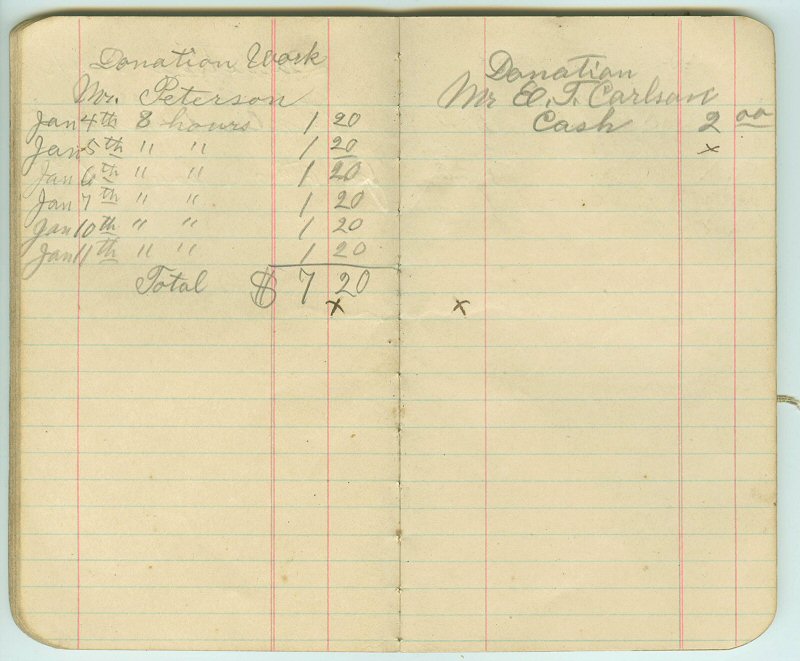 Donation Work
Mr. Peterson
Jan 4th 8 hours 1 20
Jan 5th " " 1 20
Jan 6th " " 1 20
Jan 7th " " 1 20
Jan 10th " " 1 20
Jan 11th " " 1 20
Total $ 7 20
x
Donation
Mr E. T. Carlson
Cash 2 00
x
x